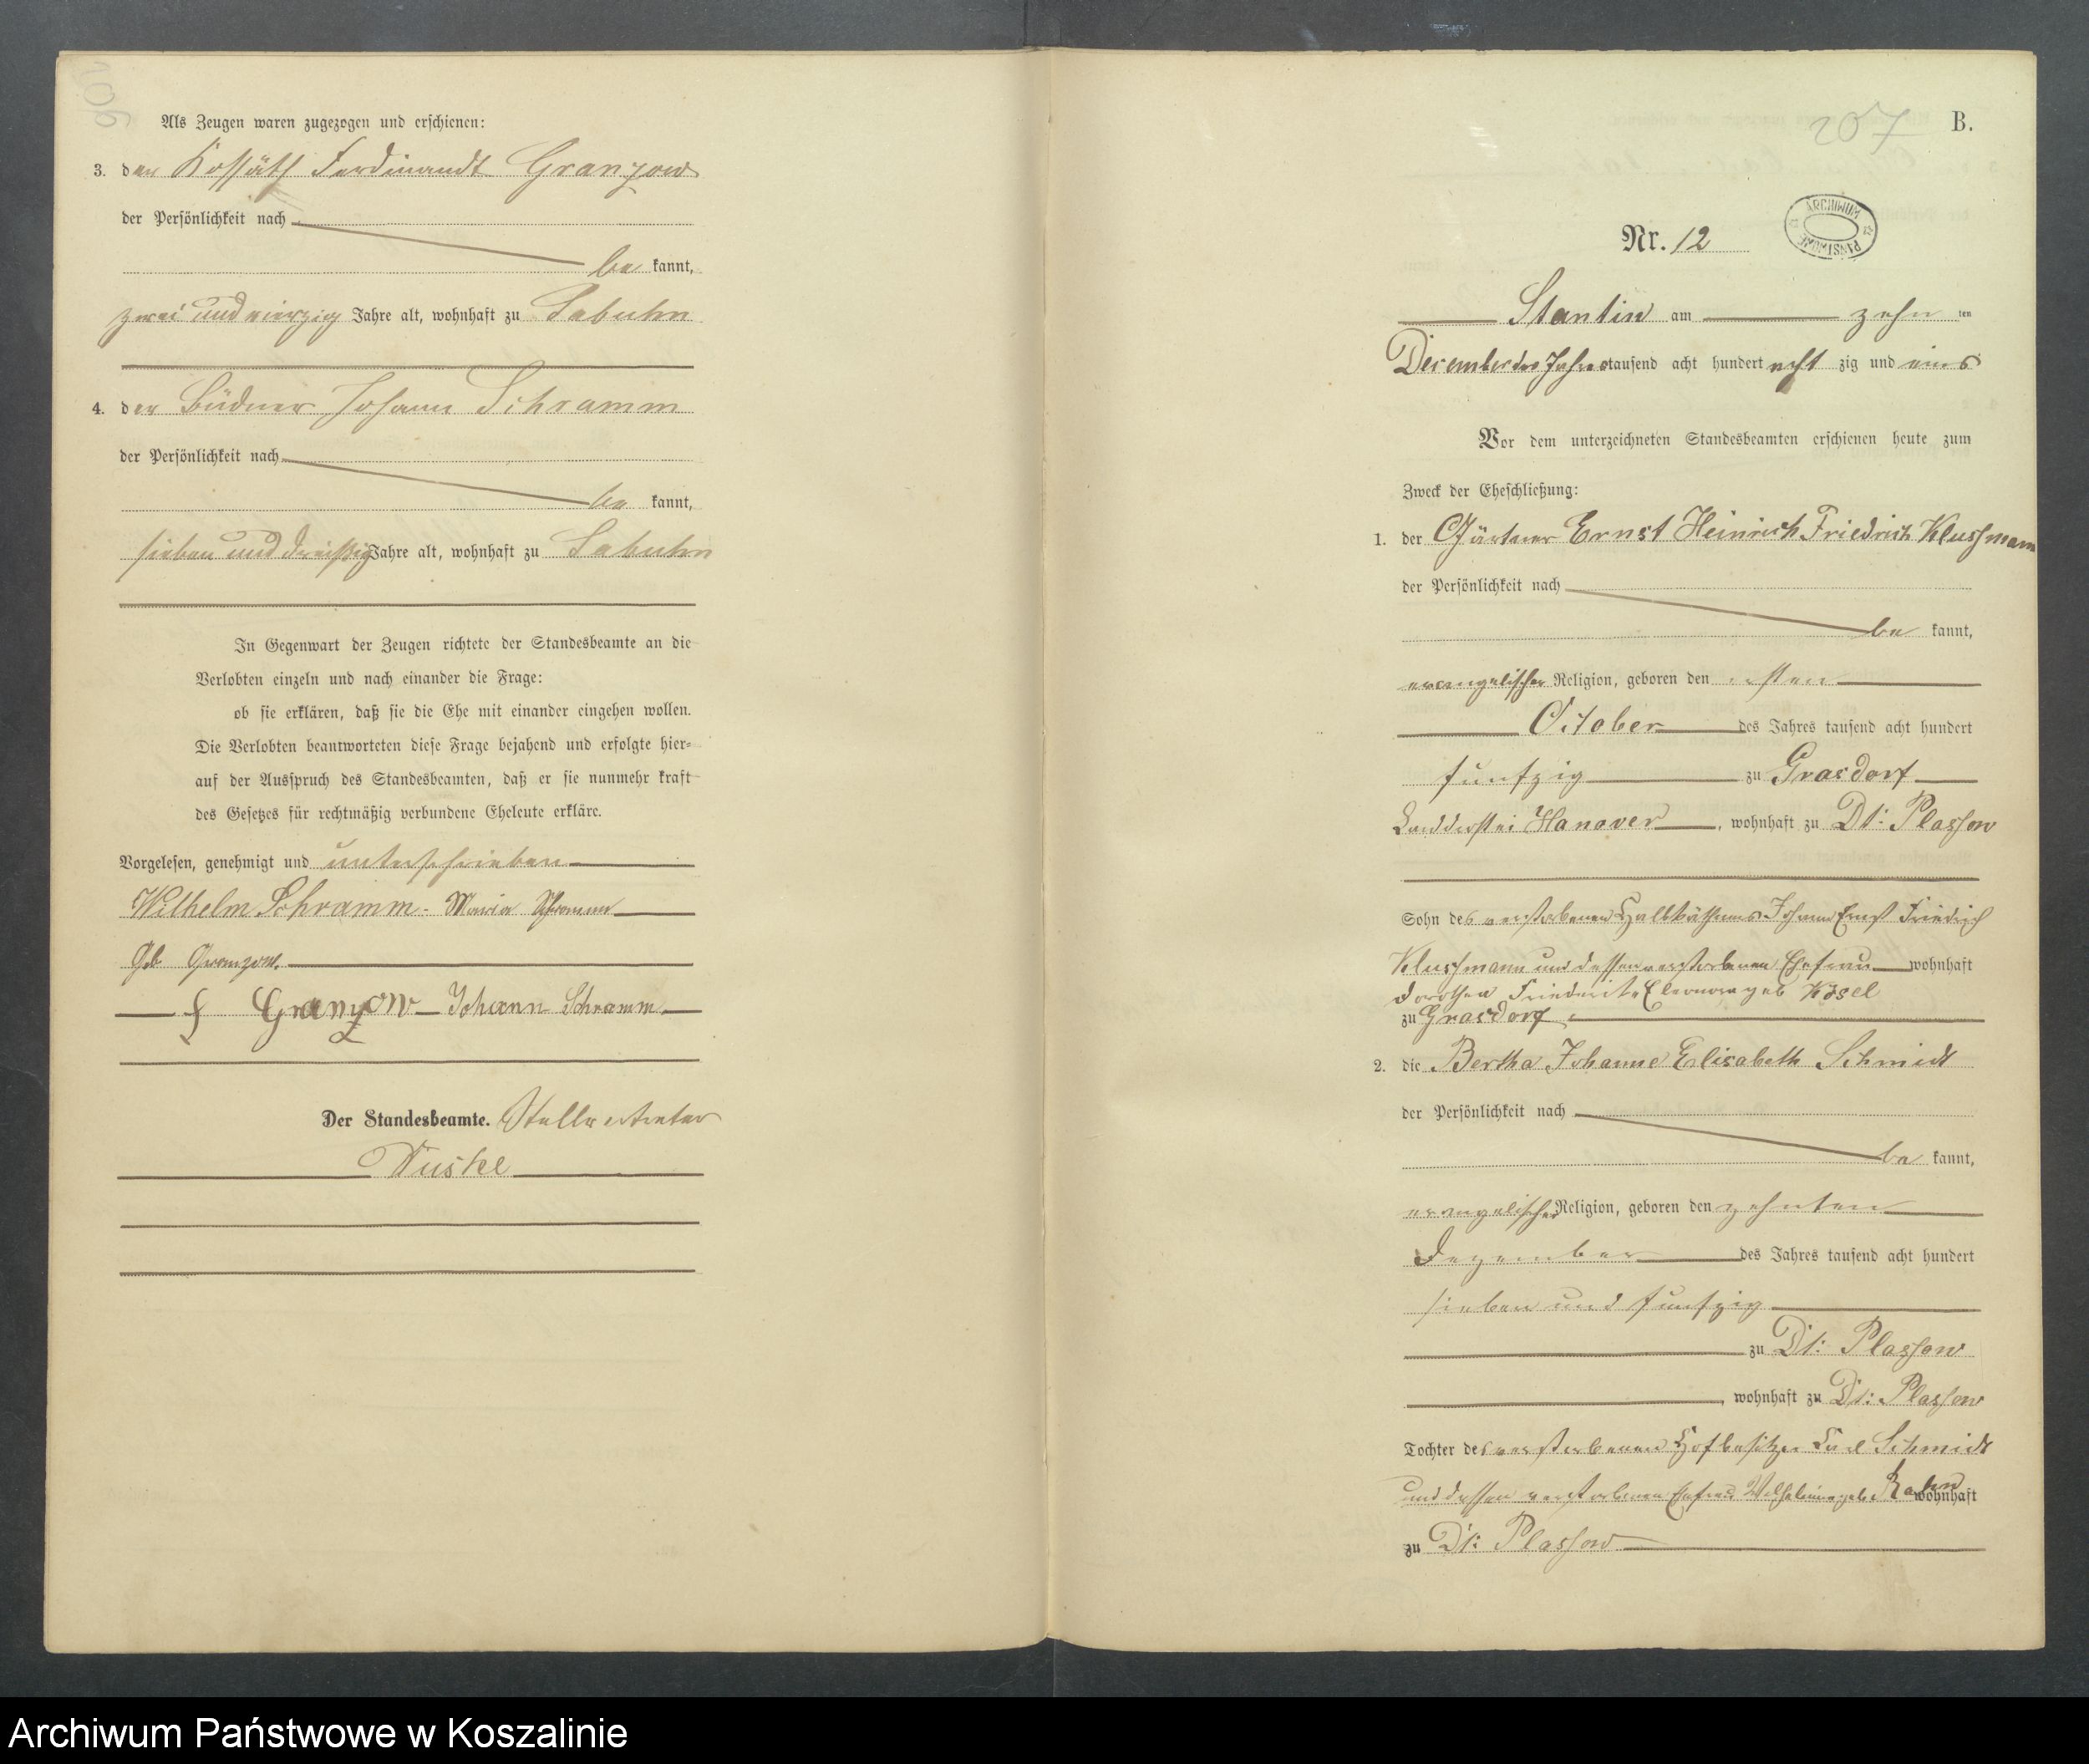 206
Als Zeugen waren zugezogen und erschienen:
3. der Kossäth Ferdinandt Granzow
der Persönlichkeit nach
be kannt,
zwei und vierzig Jahre alt, wohnhaft zu Labuhn
4. der Büdner Johann Schramm
der Persönlichkeit nach
be kannt,
sieben und dreißig Jahre alt, wohnhaft zu Labuhn
In Gegenwart der Zeugen richtete der Standesbeamte an die
Verlobten einzeln und nach einander die Frage:
ob sie erklären, daß sie die Ehe mit einander eingehen wollen.
Die Verlobten beantworteten diese Frage bejahend und erfolgte hier-
auf der Ausspruch des Standesbeamten, daß er sie nunmehr kraft
des Gesetzes für rechtmäßig verbundene Eheleute erkläre.
Vorgelesen, genehmigt und unterschrieben
Wilhelm Schramm. Maria Schramm
Geb Granzow.
f Granzow Johann Schramm
Der Standesbeamte. Stellvertreter
207 B.
Nr. 12
ARCHIWUM PAŃSTWOWE
Stantin am zehn ten
December des Jahres tausend acht hundert acht zig und eins
Vor dem unterzeichneten Standesbeamten erschienen heute zum
Zweck der Eheschließung:
1. der Gärtner Ernst Heinrich Friedrich Klussmann
der Persönlichkeit nach
be kannt,
evangelischer Religion, geboren den ersten
October des Jahres tausend acht hundert
funfzig zu Grasdorf
Landdrostei Hanover, wohnhaft zu Dt: Plassow
Sohn des verstorbenen Halbköthners Johann Ernst Friedrich
Klussmann und dessen verstorbenen Ehefrau wohnhaft
Dorothea Friederike Eleonora geb Kösel
zu Grasdorf
2. die Bertha Johanne Elisabeth Schmidt
der Persönlichkeit nach
be kannt,
evangelischer Religion, geboren den zehnten
Dezember des Jahres tausend acht hundert
sieben und funfzig
zu Dt: Plassow
, wohnhaft zu Dt: Plassow
Tochter des verstorbenen Hofbesitzer Carl Schmidt
und dessen verstorbenen Ehefrau Wilhelmine geb Rahn wohnhaft
zu Dt: Plassow
Archiwum Państwowe w Koszalinie